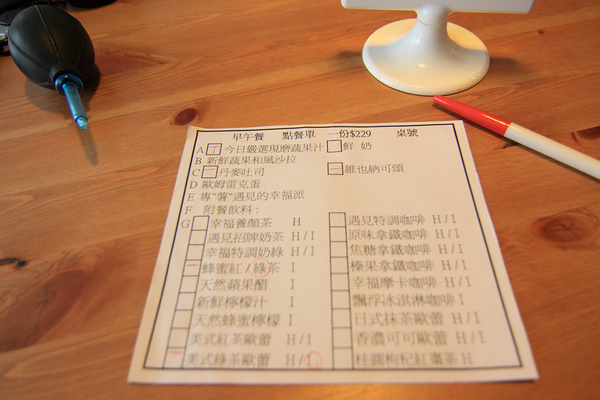 早午餐 點餐單 一份$229 桌號
A 今日嚴選現磨蔬果汁 鮮 奶
B 新鮮蔬果和風沙拉
C 丹麥吐司 維也納可頌
D 歐姆雷克蛋
E 專"薯"遇見的幸福派
F 附餐飲料：
G 幸福養顏茶 H 遇見特調咖啡 H/I
遇見招牌奶茶 H/I 原味拿鐵咖啡 H/I
幸福特調奶綠 H/I 焦糖拿鐵咖啡 H/I
蜂蜜紅/綠茶 I 榛果拿鐵咖啡 H/I
天然蘋果醋 I 幸福摩卡咖啡 H/I
新鮮檸檬汁 I 飄浮冰淇淋咖啡 I
天然蜂蜜檸檬 I 日式抹茶歐蕾 H/I
美式紅茶歐蕾 H/I 香濃可可歐蕾 H/I
美式綠茶歐蕾 H/I 桂圓枸杞紅棗茶 H